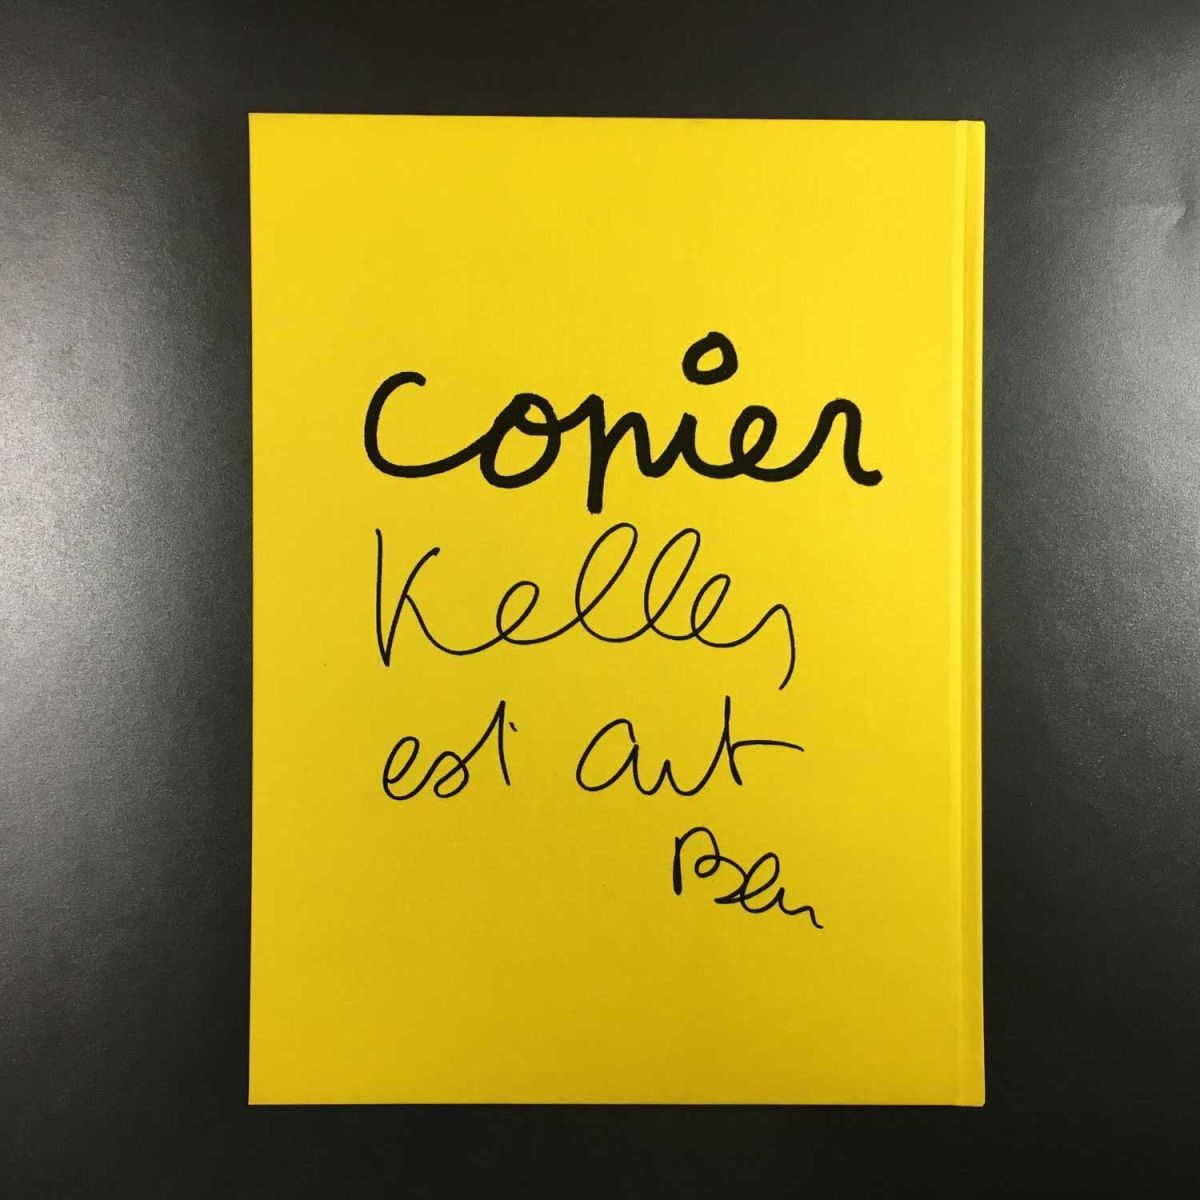 copier
Kelley
est art
Ben